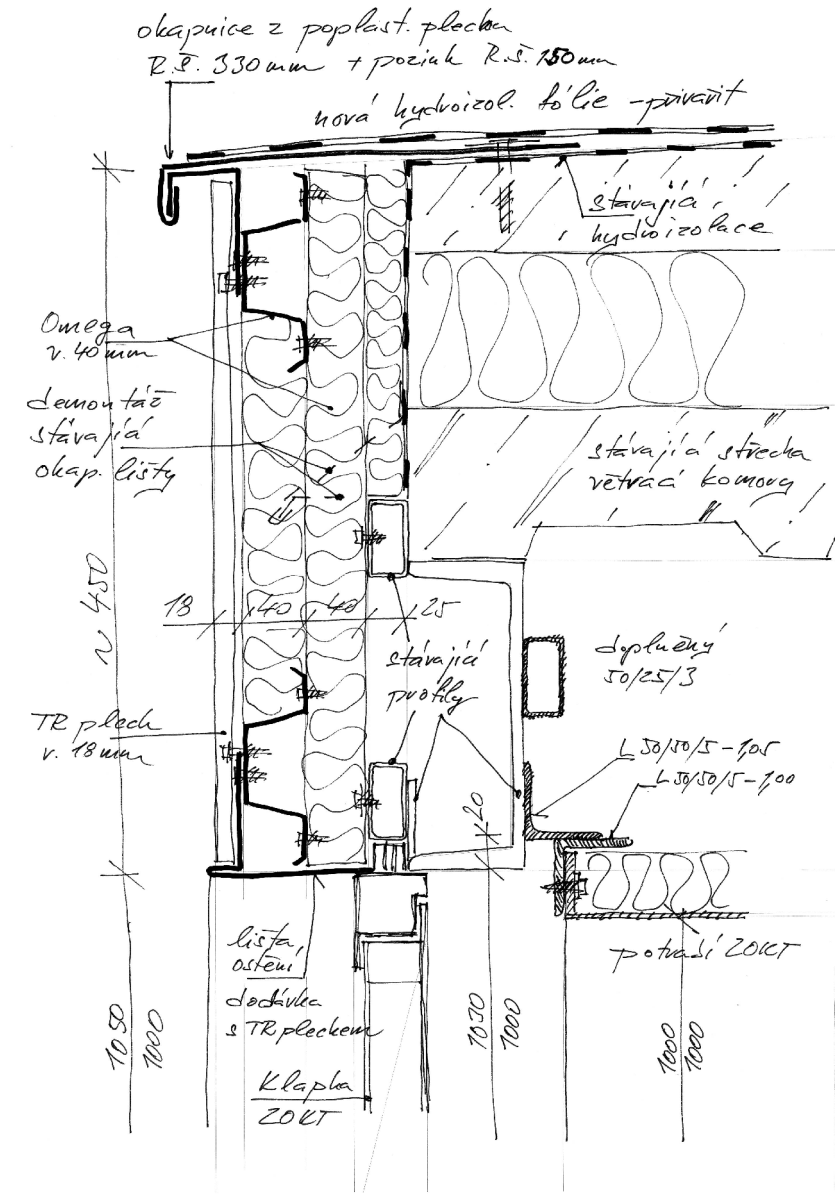 okapnice z poplast. plechu
R.Š. 330mm + pozink R.Š. 150mm
nová hydroizol. fólie - přivařit
stávající
hydroizolace
Omega
v. 40mm
demontáž
stávající
okap. lišty
stávající střecha
větrací komory
~ 450
18
40
40
25
stávající
profily
doplněný
50/25/3
TR plech
v. 18mm
L 50/50/5 - 1,05
L 50/50/5 - 1,00
20
lišta
ostění
dodávka
s TR plechem
potrubí ZOKT
1050
1000
1030
1000
1000
1000
Klapka
ZOKT